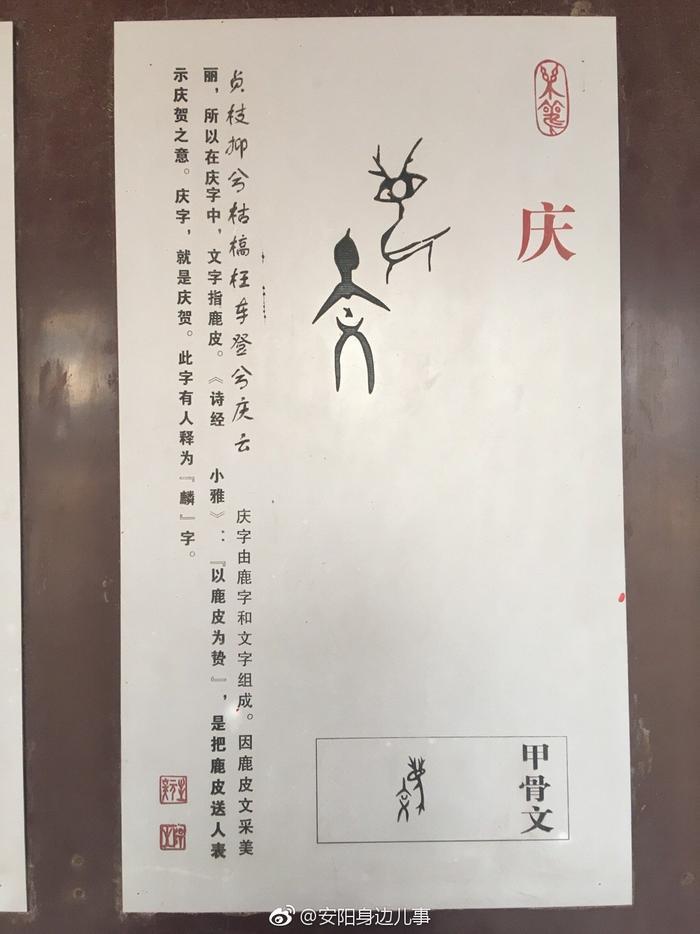 庆
贞枝抑兮枯槁枉车登兮庆云
庆字由鹿字和文字组成。因鹿皮文采美
丽，所以在庆字中，文字指鹿皮。《诗经 小雅》：『以鹿皮为贽』，是把鹿皮送人表
示庆贺之意。庆字，就是庆贺。此字有人释为『麟』字。
甲骨文
@安阳身边儿事